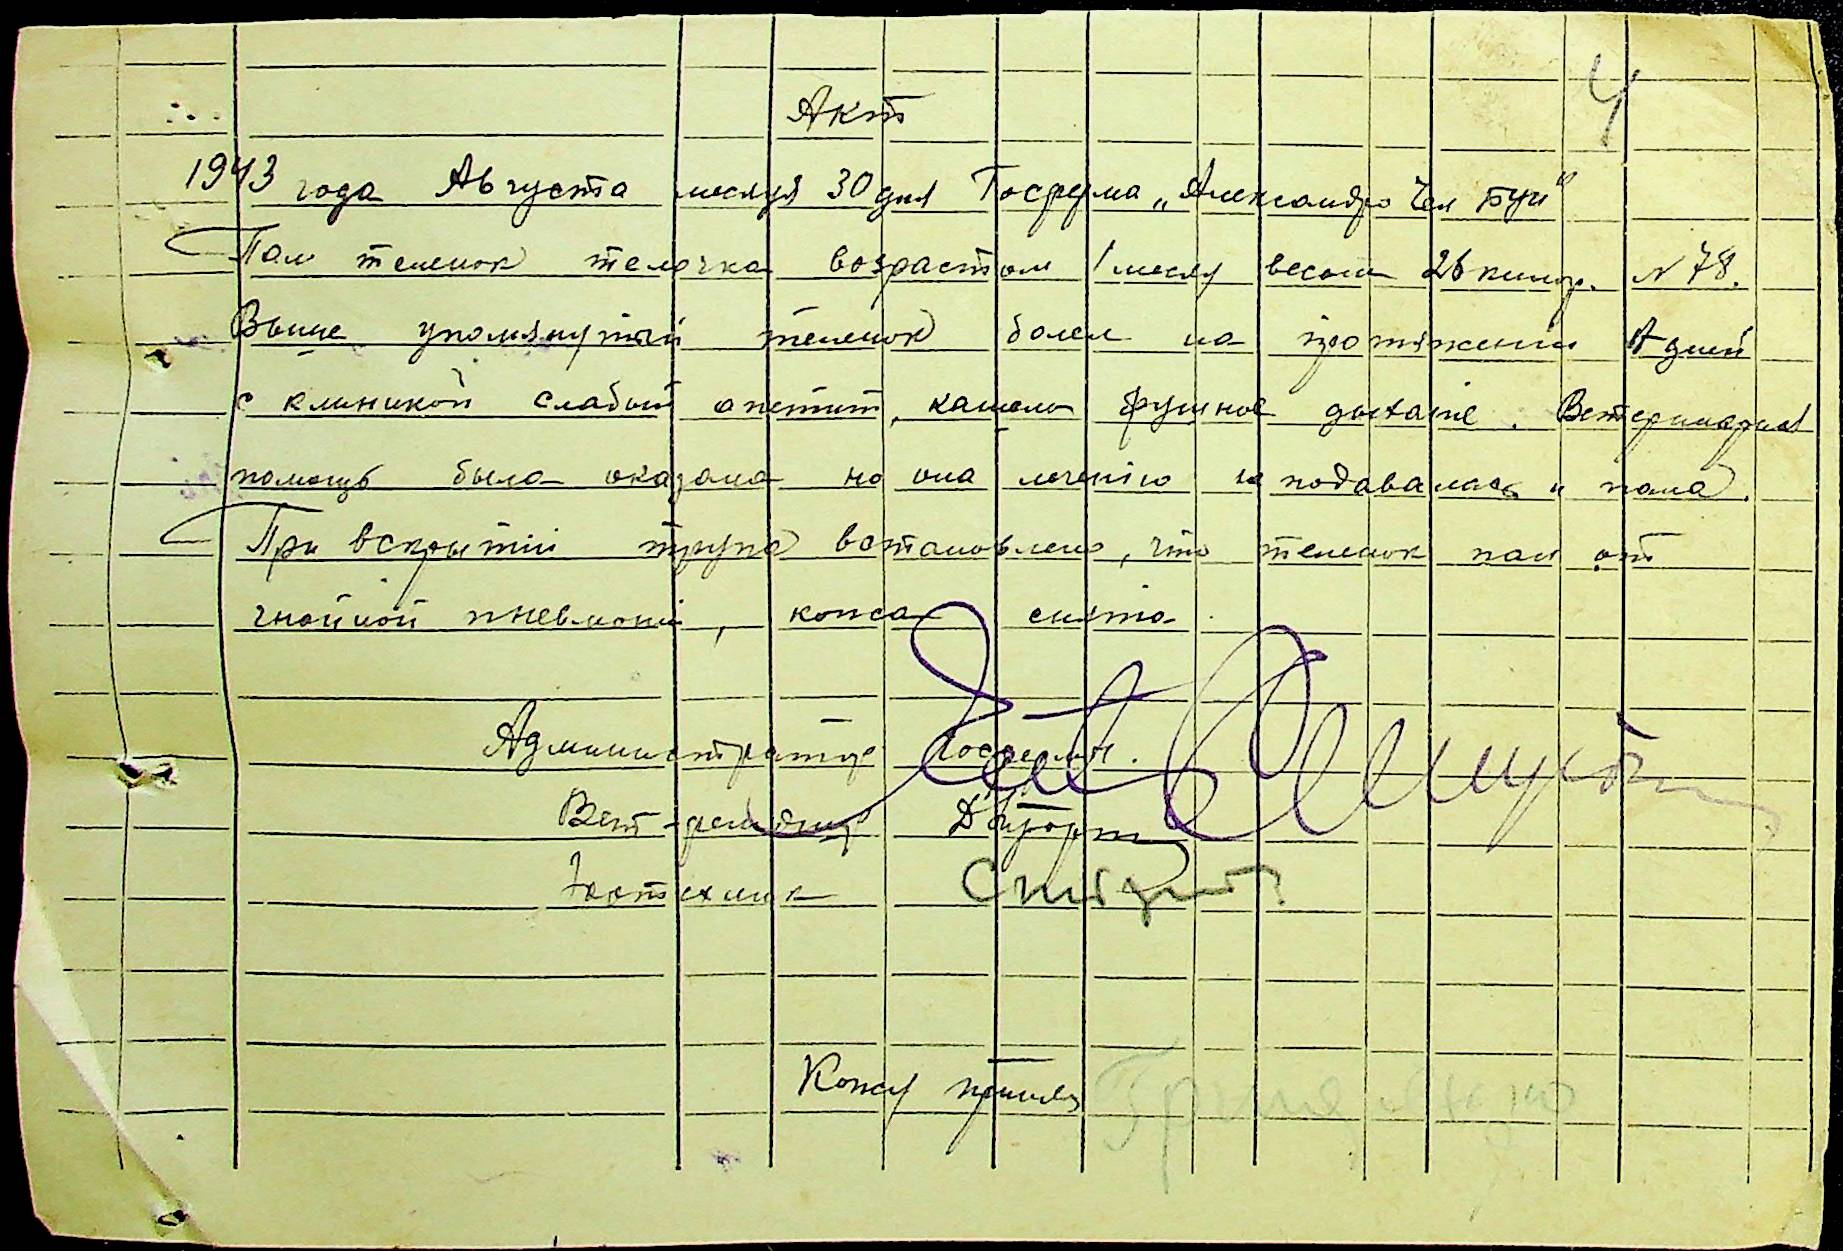 4
Акт
1943 года Августа месяця 30 дня Госферма „Александро
Пал теленок телочка возрастом 1 месяц весом 26 килогр. N 78.
Выше упомянутый теленок болел на протяжении дней
с клиникой слабый апетит, кашель дыхание. Ветеринарная
помощь была оказана но она лечению не подавалась и пала.
При вскрытіи трупа встановлено, что теленок пал от
гнойной пневмоніі, кожа снята
Администратор Госфермы.
Вет-фельдшер
Зоотехник
Кожу принял